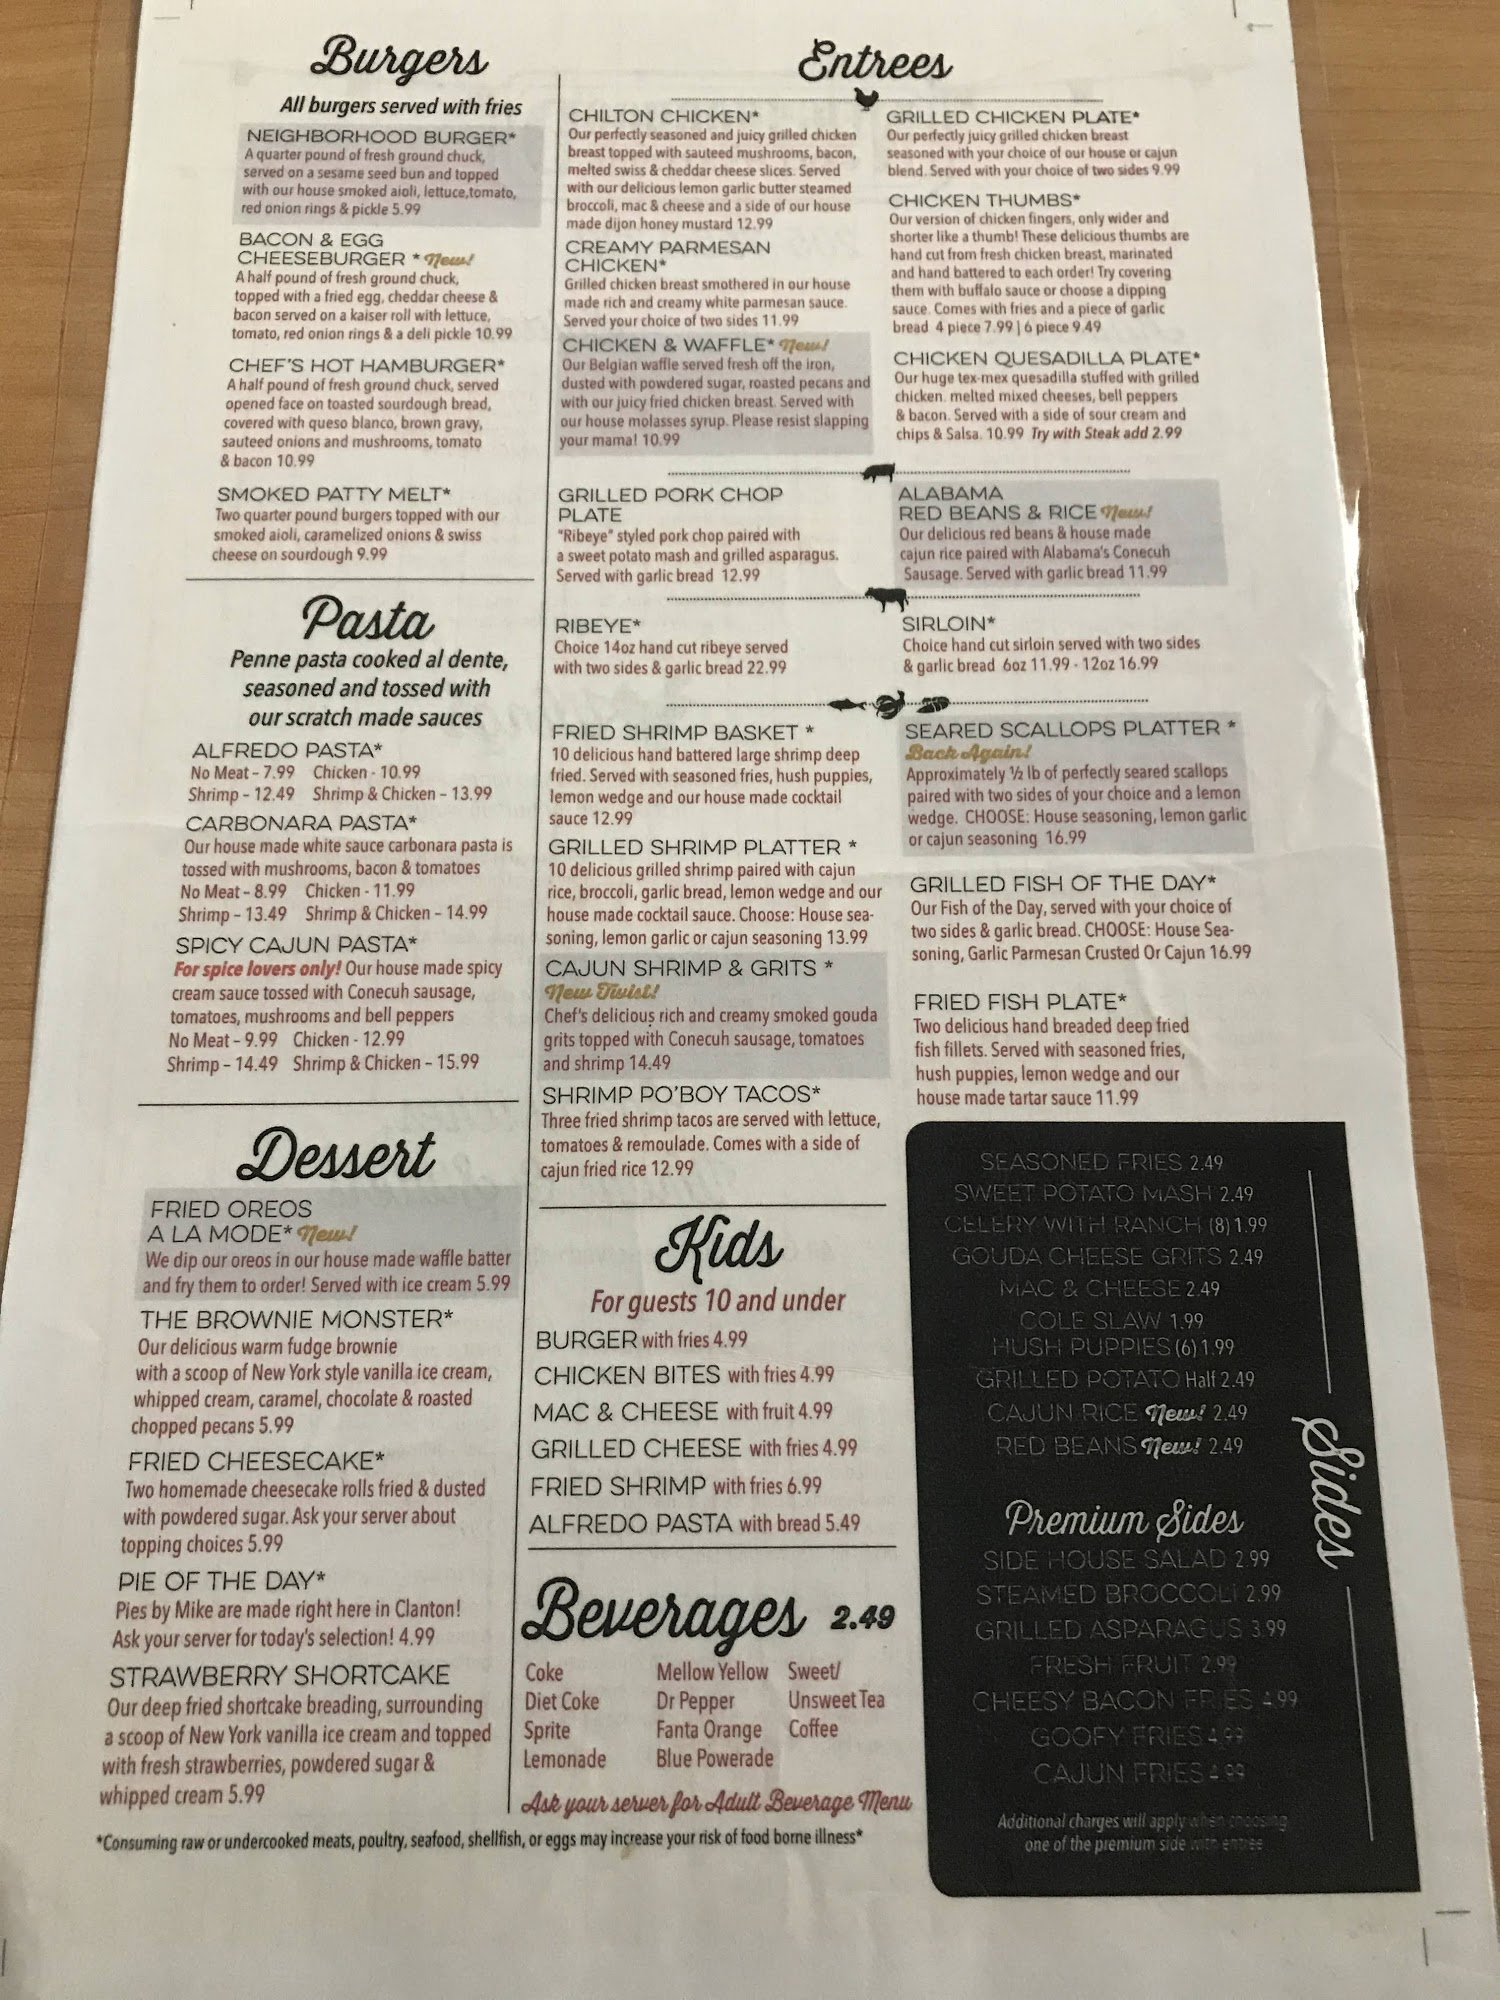 Burgers
All burgers served with fries
NEIGHBORHOOD BURGER*
A quarter pound of fresh ground chuck,
served on a sesame seed bun and topped
with our house smoked aioli, lettuce,tomato,
red onion rings & pickle 5.99
BACON & EGG
CHEESEBURGER * New!
A half pound of fresh ground chuck,
topped with a fried egg, cheddar cheese &
bacon served on a kaiser roll with lettuce,
tomato, red onion rings & a deli pickle 10.99
CHEF'S HOT HAMBURGER*
A half pound of fresh ground chuck, served
opened face on toasted sourdough bread,
covered with queso blanco, brown gravy,
sauteed onions and mushrooms, tomato
& bacon 10.99
SMOKED PATTY MELT*
Two quarter pound burgers topped with our
smoked aioli, caramelized onions & swiss
cheese on sourdough 9.99
Pasta
Penne pasta cooked al dente,
seasoned and tossed with
our scratch made sauces
ALFREDO PASTA*
No Meat – 7.99 Chicken - 10.99
Shrimp – 12.49 Shrimp & Chicken – 13.99
CARBONARA PASTA*
Our house made white sauce carbonara pasta is
tossed with mushrooms, bacon & tomatoes
No Meat – 8.99 Chicken - 11.99
Shrimp – 13.49 Shrimp & Chicken – 14.99
SPICY CAJUN PASTA*
For spice lovers only! Our house made spicy
cream sauce tossed with Conecuh sausage,
tomatoes, mushrooms and bell peppers
No Meat – 9.99 Chicken - 12.99
Shrimp – 14.49 Shrimp & Chicken – 15.99
Dessert
FRIED OREOS
A LA MODE* New!
We dip our oreos in our house made waffle batter
and fry them to order! Served with ice cream 5.99
THE BROWNIE MONSTER*
Our delicious warm fudge brownie
with a scoop of New York style vanilla ice cream,
whipped cream, caramel, chocolate & roasted
chopped pecans 5.99
FRIED CHEESECAKE*
Two homemade cheesecake rolls fried & dusted
with powdered sugar. Ask your server about
topping choices 5.99
PIE OF THE DAY*
Pies by Mike are made right here in Clanton!
Ask your server for today's selection! 4.99
STRAWBERRY SHORTCAKE
Our deep fried shortcake breading, surrounding
a scoop of New York vanilla ice cream and topped
with fresh strawberries, powdered sugar &
whipped cream 5.99
Entrees
CHILTON CHICKEN*
Our perfectly seasoned and juicy grilled chicken
breast topped with sauteed mushrooms, bacon,
melted swiss & cheddar cheese slices. Served
with our delicious lemon garlic butter steamed
broccoli, mac & cheese and a side of our house
made dijon honey mustard 12.99
CREAMY PARMESAN
CHICKEN*
Grilled chicken breast smothered in our house
made rich and creamy white parmesan sauce.
Served your choice of two sides 11.99
CHICKEN & WAFFLE* New!
Our Belgian waffle served fresh off the iron,
dusted with powdered sugar, roasted pecans and
with our juicy fried chicken breast. Served with
our house molasses syrup. Please resist slapping
your mama! 10.99
GRILLED CHICKEN PLATE*
Our perfectly juicy grilled chicken breast
seasoned with your choice of our house or cajun
blend. Served with your choice of two sides 9.99
CHICKEN THUMBS*
Our version of chicken fingers, only wider and
shorter like a thumb! These delicious thumbs are
hand cut from fresh chicken breast, marinated
and hand battered to each order! Try covering
them with buffalo sauce or choose a dipping
sauce. Comes with fries and a piece of garlic
bread 4 piece 7.99 | 6 piece 9.49
CHICKEN QUESADILLA PLATE*
Our huge tex-mex quesadilla stuffed with grilled
chicken. melted mixed cheeses, bell peppers
& bacon. Served with a side of sour cream and
chips & Salsa. 10.99 Try with Steak add 2.99
GRILLED PORK CHOP
PLATE
"Ribeye" styled pork chop paired with
a sweet potato mash and grilled asparagus.
Served with garlic bread 12.99
ALABAMA
RED BEANS & RICE New!
Our delicious red beans & house made
cajun rice paired with Alabama's Conecuh
Sausage. Served with garlic bread 11.99
RIBEYE*
Choice 14oz hand cut ribeye served
with two sides & garlic bread 22.99
SIRLOIN*
Choice hand cut sirloin served with two sides
& garlic bread 6oz 11.99 - 12oz 16.99
FRIED SHRIMP BASKET *
10 delicious hand battered large shrimp deep
fried. Served with seasoned fries, hush puppies,
lemon wedge and our house made cocktail
sauce 12.99
GRILLED SHRIMP PLATTER *
10 delicious grilled shrimp paired with cajun
rice, broccoli, garlic bread, lemon wedge and our
house made cocktail sauce. Choose: House sea-
soning, lemon garlic or cajun seasoning 13.99
CAJUN SHRIMP & GRITS *
New Twist!
Chef's delicious rich and creamy smoked gouda
grits topped with Conecuh sausage, tomatoes
and shrimp 14.49
SHRIMP PO'BOY TACOS*
Three fried shrimp tacos are served with lettuce,
tomatoes & remoulade. Comes with a side of
cajun fried rice 12.99
SEARED SCALLOPS PLATTER *
Back Again!
Approximately ½ lb of perfectly seared scallops
paired with two sides of your choice and a lemon
wedge. CHOOSE: House seasoning, lemon garlic
or cajun seasoning 16.99
GRILLED FISH OF THE DAY*
Our Fish of the Day, served with your choice of
two sides & garlic bread. CHOOSE: House Sea-
soning, Garlic Parmesan Crusted Or Cajun 16.99
FRIED FISH PLATE*
Two delicious hand breaded deep fried
fish fillets. Served with seasoned fries,
hush puppies, lemon wedge and our
house made tartar sauce 11.99
Kids
For guests 10 and under
BURGER with fries 4.99
CHICKEN BITES with fries 4.99
MAC & CHEESE with fruit 4.99
GRILLED CHEESE with fries 4.99
FRIED SHRIMP with fries 6.99
ALFREDO PASTA with bread 5.49
Beverages 2.49
Coke
Diet Coke
Sprite
Lemonade
Mellow Yellow
Dr Pepper
Fanta Orange
Blue Powerade
Sweet/
Unsweet Tea
Coffee
Ask your server for Adult Beverage Menu
Sides
SEASONED FRIES 2.49
SWEET POTATO MASH 2.49
CELERY WITH RANCH (8) 1.99
GOUDA CHEESE GRITS 2.49
MAC & CHEESE 2.49
COLE SLAW 1.99
HUSH PUPPIES (6) 1.99
GRILLED POTATO Half 2.49
CAJUN RICE New! 2.49
RED BEANS New! 2.49
Premium Sides
SIDE HOUSE SALAD 2.99
STEAMED BROCCOLI 2.99
GRILLED ASPARAGUS 3.99
FRESH FRUIT 2.99
CHEESY BACON FRIES 4.99
GOOFY FRIES 4.99
CAJUN FRIES 4.99
Additional charges will apply when choosing
one of the premium side with entree
*Consuming raw or undercooked meats, poultry, seafood, shellfish, or eggs may increase your risk of food borne illness*